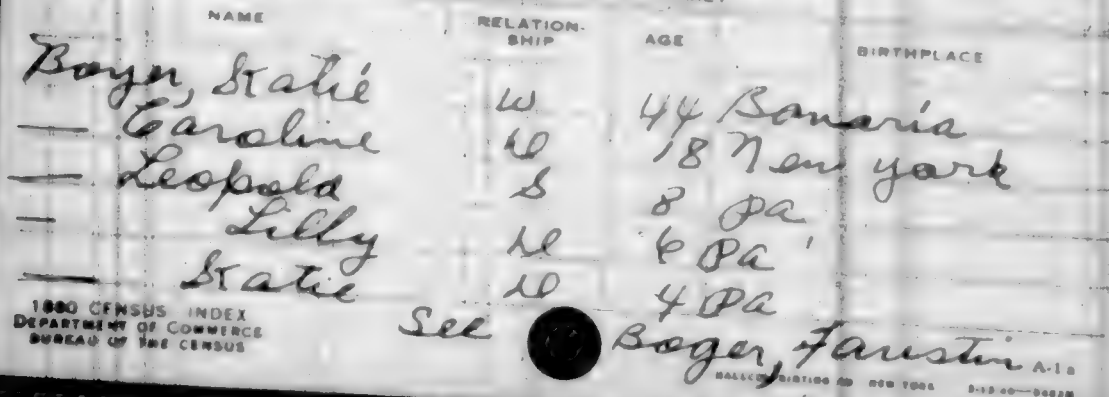 NAME RELATION-SHIP AGE BIRTHPLACE
Boyer, Statie W 44 Bavaria
— Caroline D 18 New York
— Leopold S 8 Pa
— Lilly D 6 Pa
— Statie D 4 Pa
1880 CENSUS INDEX
DEPARTMENT OF COMMERCE
BUREAU OF THE CENSUS
See Boger, Faustin A-1a